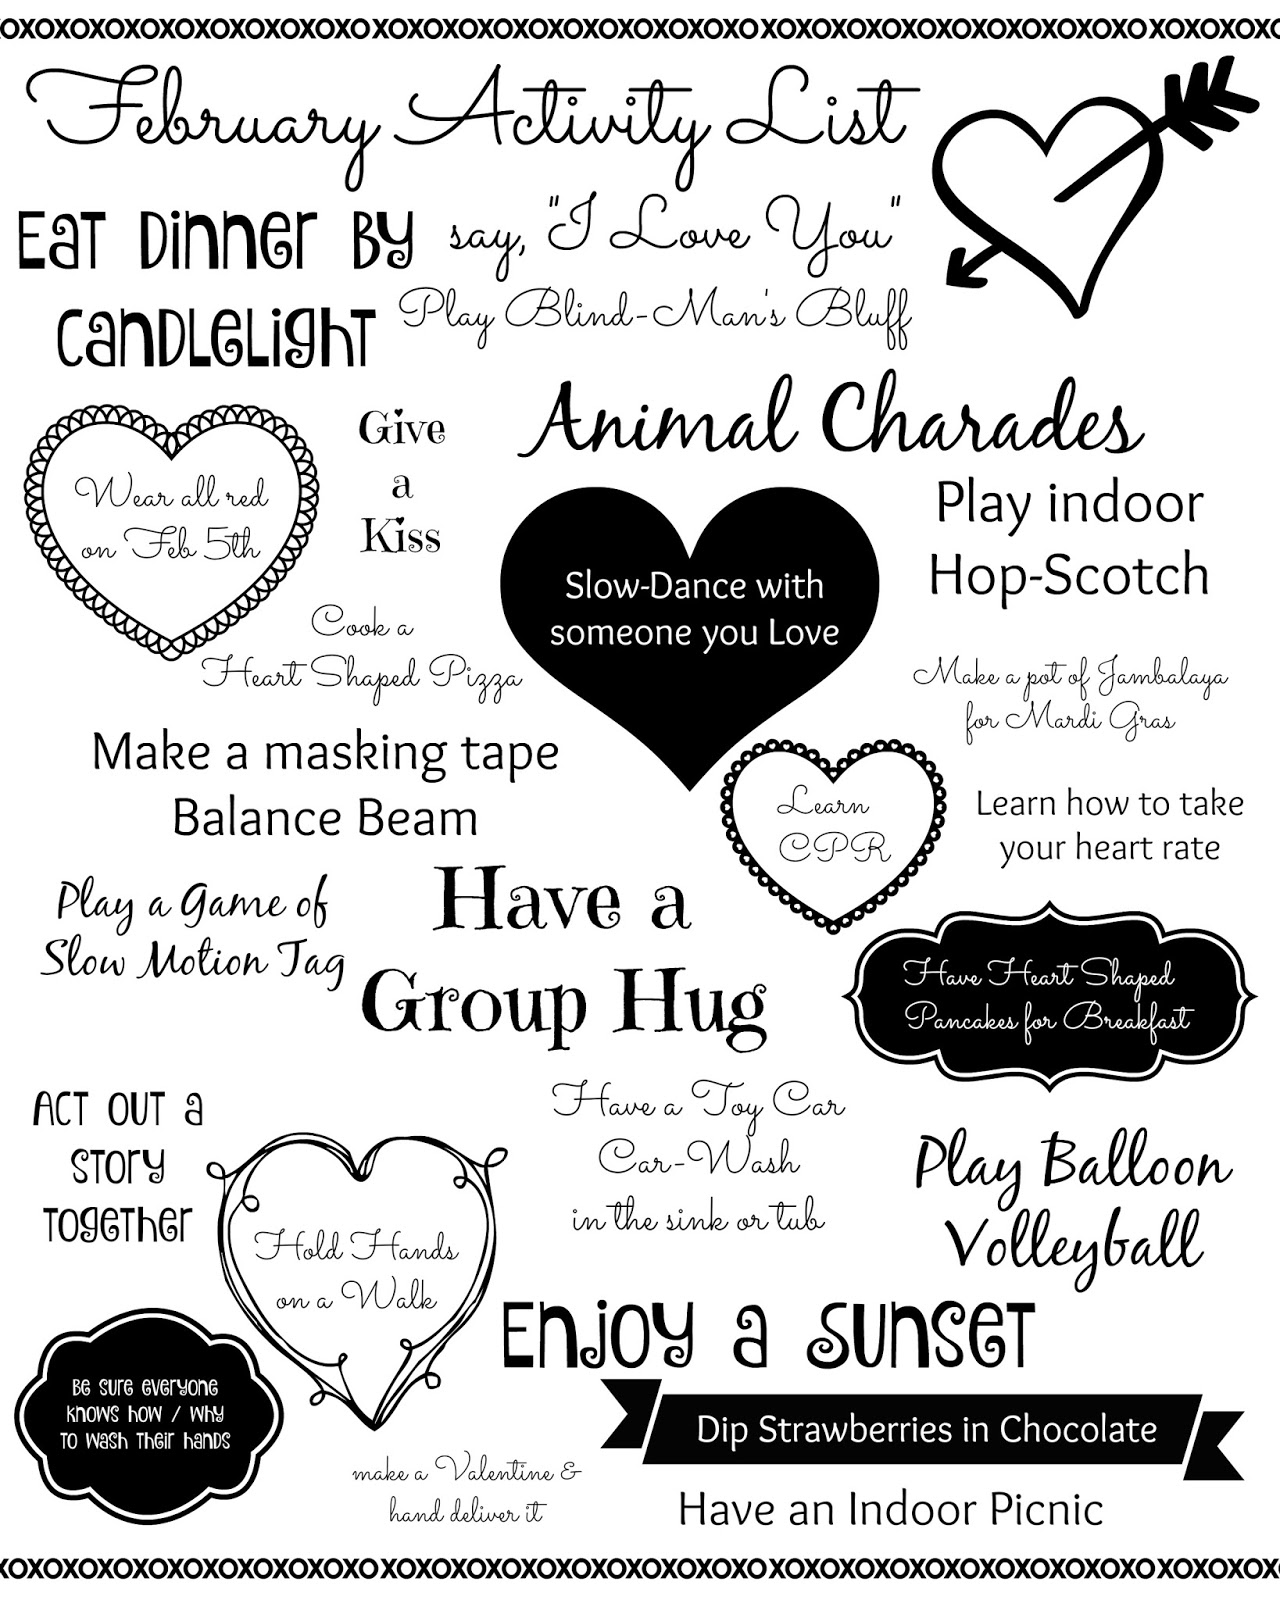 XOXOXOXOXOXOXOXOXOXOXOXOXOXOXOXOXOXOXOXOXOXOXOXOXOXOXOXOXOXOXOXO
February Activity List
Eat Dinner By
Candlelight
say, "I Love You"
Play Blind-Man's Bluff
Animal Charades
Wear all red
on Feb 5th
Give
a
Kiss
Slow-Dance with
someone you Love
Play indoor
Hop-Scotch
Cook a
Heart Shaped Pizza
Make a pot of Jambalaya
for Mardi Gras
Make a masking tape
Balance Beam
Learn
CPR
Learn how to take
your heart rate
Play a Game of
Slow Motion Tag
Have a
Group Hug
Have Heart Shaped
Pancakes for Breakfast
Act out a
story
together
Have a Toy Car
Car-Wash
in the sink or tub
Play Balloon
Volleyball
Hold Hands
on a Walk
Enjoy a Sunset
Be sure everyone
knows how / why
to wash their hands
Dip Strawberries in Chocolate
make a Valentine &
hand deliver it
Have an Indoor Picnic
XOXOXOXOXOXOXOXOXOXOXOXOXOXOXOXOXOXOXOXOXOXOXOXOXOXOXOXOXOXOXOXO